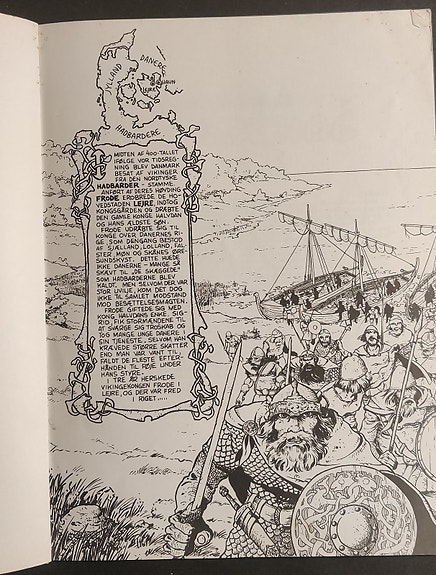 JYLLAND
DANERE
LEJRE
HADBARDERE
I MIDTEN AF 400-TALLET
IFØLGE VOR TIDSREG-
NING BLEV DANMARK
BESAT AF VIKINGER
FRA DEN NORDTYSKE
HADBARDER - STAMME.
ANFØRT AF DERES HØVDING
FRODE EROBREDE DE HO-
VEDSTADEN LEJRE, INDTOG
KONGSGÅRDEN OG DRÆBTE
DEN GAMLE KONGE HALVDAN
OG HANS ÆLDSTE SØN.
FRODE UDRÅBTE SIG TIL
KONGE OVER DANERNES RI-
GE, SOM DENGANG BESTOD
AF SJÆLLAND, LOLLAND, FAL-
STER, MØN OG SKÅNES ØRE-
SUNDSKYST. DETTE HUEDE
IKKE DANERNE - MANGE SÅ
SKÆVT TIL „DE SKÆGGEDE"
SOM HADBARDERNE BLEV
KALDT. MEN SELVOM DER VAR
STOR UVILJE, KOM DET DOG
IKKE TIL SAMLET MODSTAND
MOD BESÆTTELSESMAGTEN.
FRODE GIFTEDE SIG MED
KONG HALVDANS ENKE, SIG-
RID, FIK STORMÆNDENE TIL
AT SVÆRGE SIG TROSKAB OG
TOG MANGE UNGE DANERE I
SIN TJENESTE. SELVOM HAN
KRÆVEDE STØRRE SKATTER
END MAN VAR VANT TIL,
FALDT DE FLESTE EFTER-
HÅNDEN TIL FØJE UNDER
HANS STYRE.
I TRE ÅR HERSKEDE
VIKINGEKONGEN FRODE I
LEJRE, OG DER VAR FRED
I RIGET.....